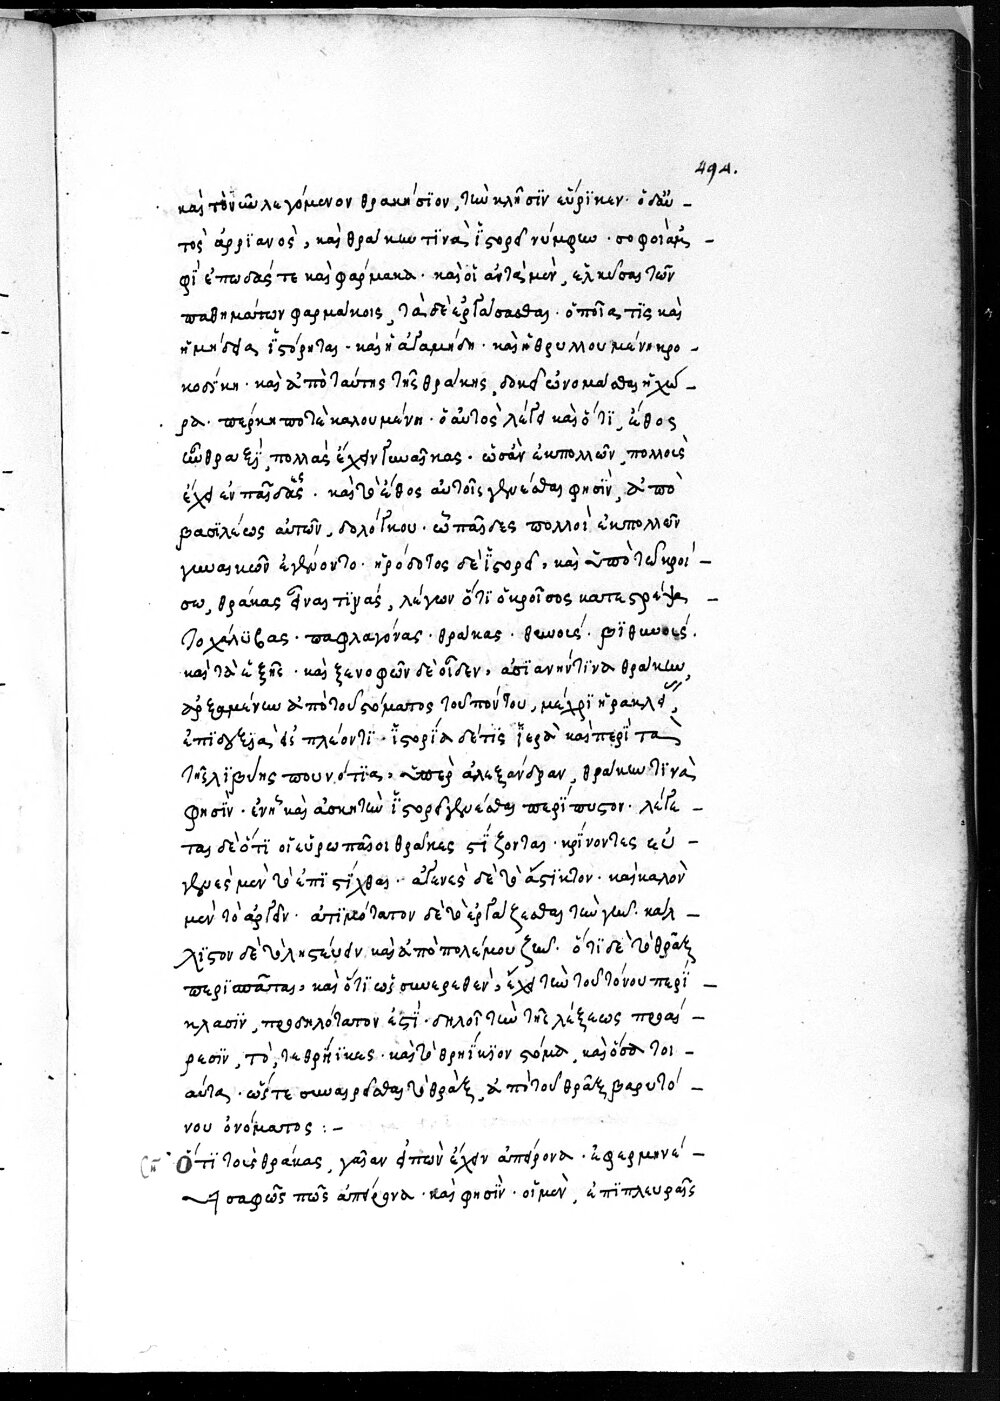 494.
καὶ τὸν νῦν λεγόμενον θρακήσϊον, τὴν κλῆσϊν εὕρϊκεν· ὁ δ' αὐ-
τὸς ἀρρϊανὸς, καὶ θράκην τϊνὰ ἱστορεῖ νύμφην· σοφὴν ἀμ-
φὶ ἐπῳδάς τε καὶ φάρμακα· καὶ οἵαν τὰ μὲν, ἐκλῦσαι τῶν
παθημάτων φαρμάκοις, τὰ δὲ ἐργάσασθαι· ὁποία τϊς καὶ
ἡ μήδεια ἱστόρηται· καὶ ἡ ἀγαμήδη· καὶ ἡ θρυλλουμένη κρο-
κοδίκη· καὶ ἀπὸ ταύτης τῆς θράκης, δοκεῖ ὠνομάσθαι ἡ χώ-
ρα· πέρκη ποτὲ καλουμένη· ὁ αὐτὸς λέγει καὶ ὅτϊ, ἔθος
ἦν θραξὶ, πολλὰς ἔχειν γυναῖκας· ὡς ἂν ἐκ πολλῶν, πολλοὺς
ἔχειεν παῖδας· καὶ τὸ ἔθος αὐτοῖς γενέσθαι φησὶν, ἀπὸ
βασϊλέως αὐτῶν, δολόγκου· ᾧ παῖδες πολλοὶ ἐκ πολλῶν
γυναικῶν ἐγένοντο· ἡρόδοτος δὲ ἱστορεῖ, καὶ ὑπὸ τῷ κροί-
σῳ, θρᾷκας εἶναί τϊνας, λέγων ὅτϊ ὁ κροῖσος κατεστρέψα
το χάλϋβας· παφλαγόνας· θρᾷκας· θυνούς· βϊθυνούς·
καὶ τὰ ἑξῆς· καὶ ξενοφῶν δὲ οἶδεν, ἀσϊανήν τϊνα θράκην,
ἀρξαμένην ἀπὸ τοῦ στόματος τοῦ πόντου, μέχρϊ ἡρακλείας,
ἐπὶ δεξϊὰ εἰσπλέοντϊ· ἱστορία δέ τϊς ἱερὰ καὶ περὶ τὰ
τῆς λϊβύης που νότϊα, ὑπὲρ ἀλεξάνδρειαν, θράκην τϊνὰ
φησὶν· ἐν ᾗ καὶ ἀσκητὴν ἱστορεῖ γενέσθαι περίπυστον· λέγε-
ται δὲ ὅτϊ οἱ εὐρωπαῖοι θρᾷκες στίζονται· κρίνοντες εὐ-
γενὲς μὲν τὸ ἐπϊστίχθαι· ἀγενὲς δὲ τὸ ἄστϊκτον· καὶ καλὸν
μὲν τὸ ἀργεῖν· ἀτϊμότατον δὲ τὸ ἐργάζεσθαι τὴν γῆν· κάλ-
λϊστον δὲ τὸ ληστεύειν καὶ ἀπὸ πολέμου ζῆν· ὅτϊ δὲ τὸ θρᾷξ
περϊσπᾶται, καὶ ὅτϊ ὡς συναιρεθὲν, ἔχει τὴν τοῦ τόνου περί-
κλασϊν, προδηλότατον ἐστὶ· δηλοῖ τὴν τῆς λέξεως προαί-
ρεσϊν, τό, τε θρήϊκες· καὶ τὸ θρηΐκϊον στόμα, καὶ ὅσα τοι-
αῦτα· ὥστε συναιρεῖσθαι τὸ θρᾷξ, ἀπὸ τοῦ θρᾷϊξ βαρυτό-
νου ὀνόματος :-
Ὅτϊ τοὺς θρᾷκας, γαῖαν εἰπὼν ἔχειν ἀπείρονα· ἐφερμηνεύ-
ει σαφῶς πῶς ἀπείρονα· καὶ φησὶν· οἱ μὲν, ἐπὶ πλευρὰς